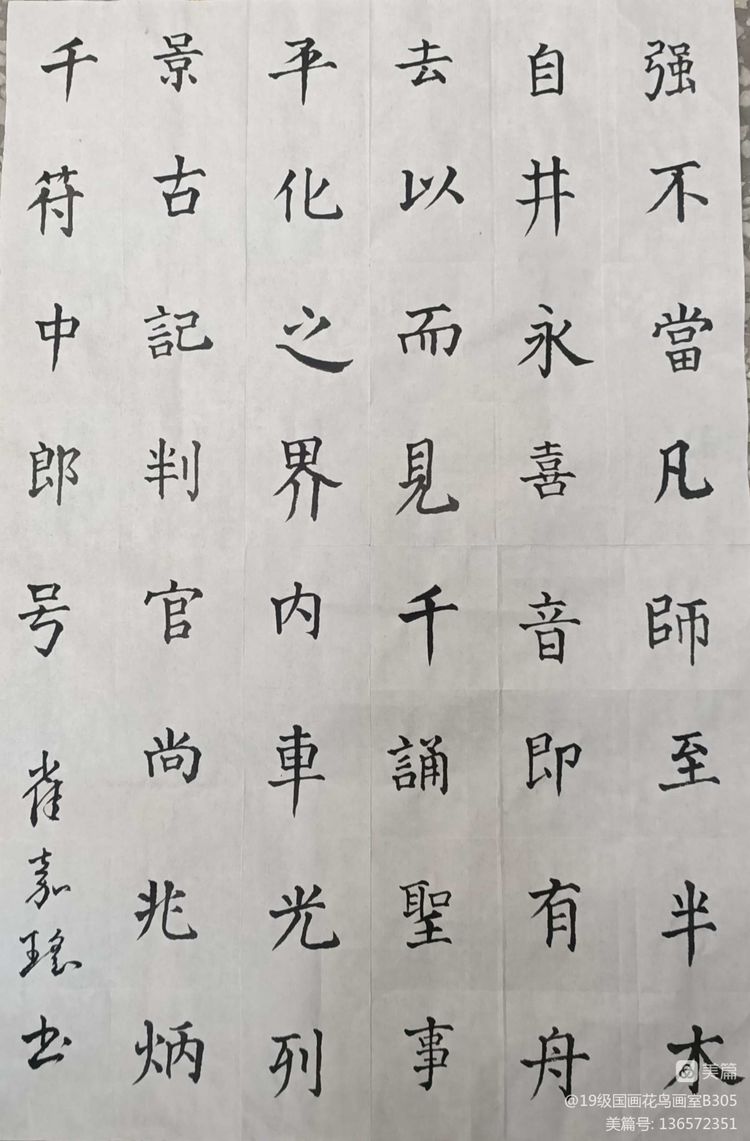 强不當凡師至半木
自井永喜音即有舟
去以而見千誦聖事
平化之界内車光列
景古記判官尚兆炳
千符中郎号
雀嘉瑶书
美篇
@19级国画花鸟画室B305
美篇号: 136572351